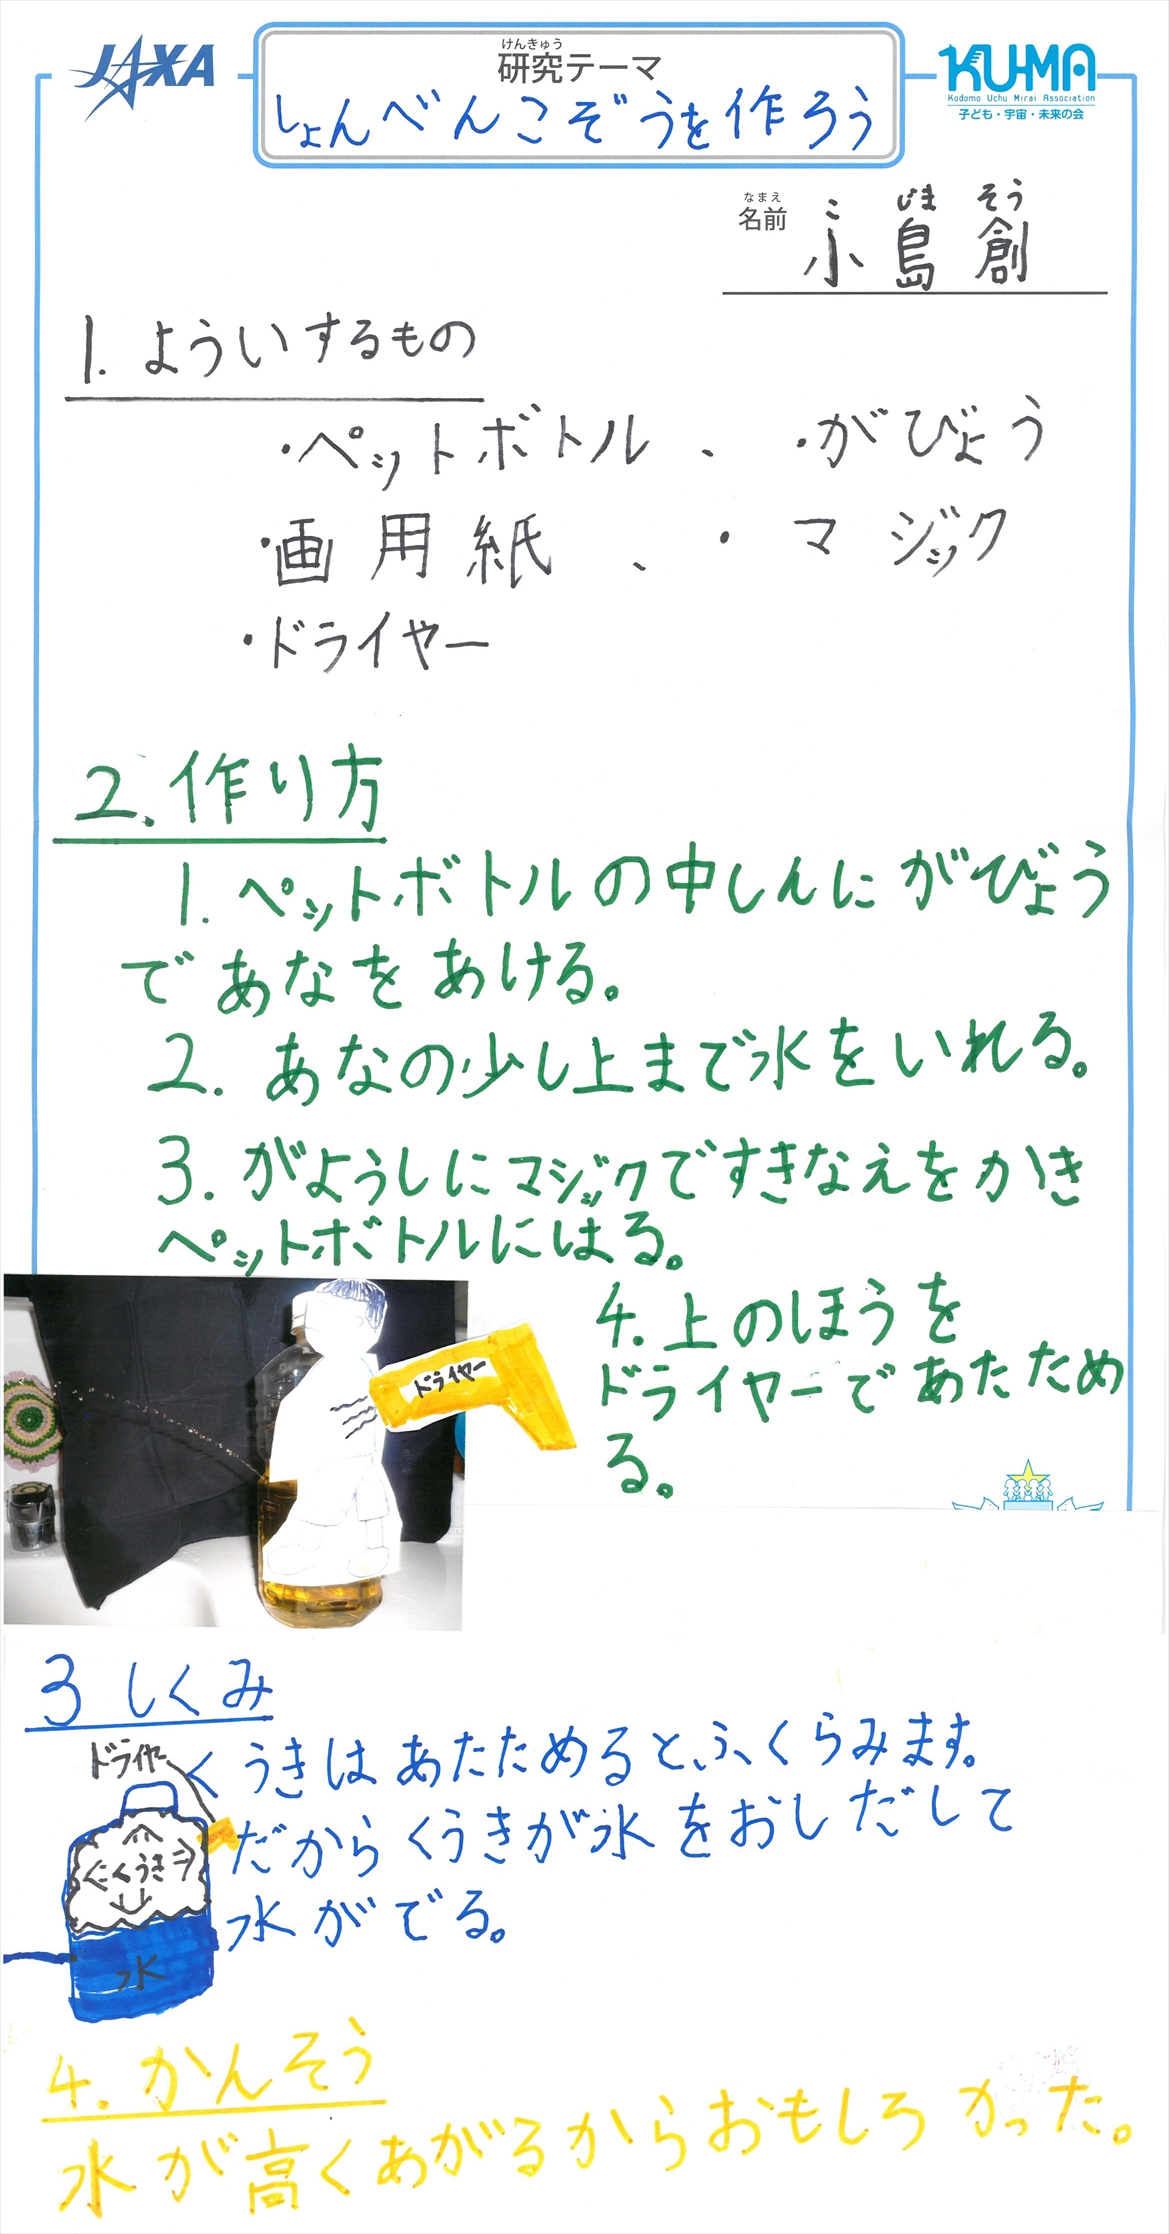 JAXA
けんきゅう
研究テーマ
しょんべんこぞうを作ろう
KU-MA
Kodomo Uchu Mirai Association
子ども・宇宙・未来の会
なまえ
名前
こ じま そう
小島創
1. よういするもの
・ペットボトル 、 ・がびょう
・画用紙 、 ・マジック
・ドライヤー
2. 作り方
1. ペットボトルの中しんにがびょう
であなをあける。
2. あなの少し上まで水をいれる。
3. がようしにマジックですきなえをかき
ペットボトルにはる。
4. 上のほうを
ドライヤーであたため
る。
ドライヤー
3 しくみ
くうきはあたためるとふくらみます。
だからくうきが水をおしだして
水がでる。
ドライヤー
くうき
水
4. かんそう
水が高くあがるからおもしろかった。